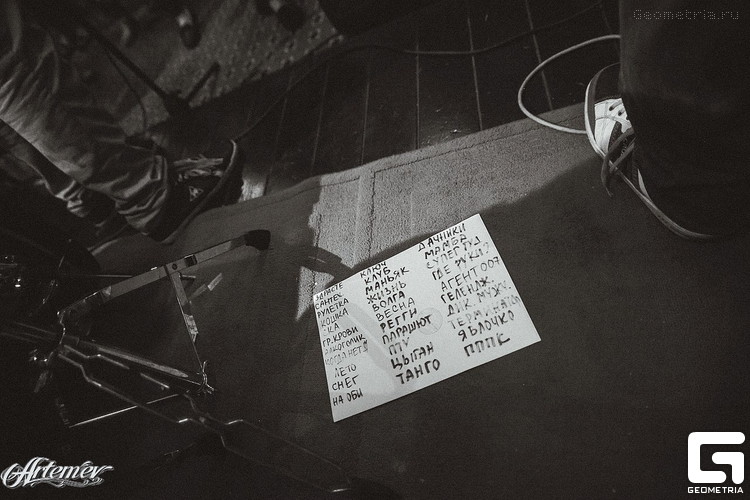 Geometria.ru
ЗДРАСТЕ
САНТЕХ
РУЛЕТКА
КОШКА
ГР. КРОВИ
АЛКОГОЛИК
КОГДА НЕТ
ЛЕТО
СНЕГ
НА ОБИ
КЛЮЧ
КЛУБ
МАНЬЯК
ЖИЗНЬ
ВОЛГА
ВЕСНА
РЕГГИ
ПАРАШЮТ
ПТУ
ЦЫГАН
ТАНГО
ДАЧНИКИ
МАМБА
СУПЕРГУД
ГДЕ РУКИ?
АГЕНТ 007
ГЕЛЕНДЖ.
ДИК. МУЖ.
ТЕРМИНАТОР
ЯБЛОЧКО
ПППК
Artemev
GEOMETRIA